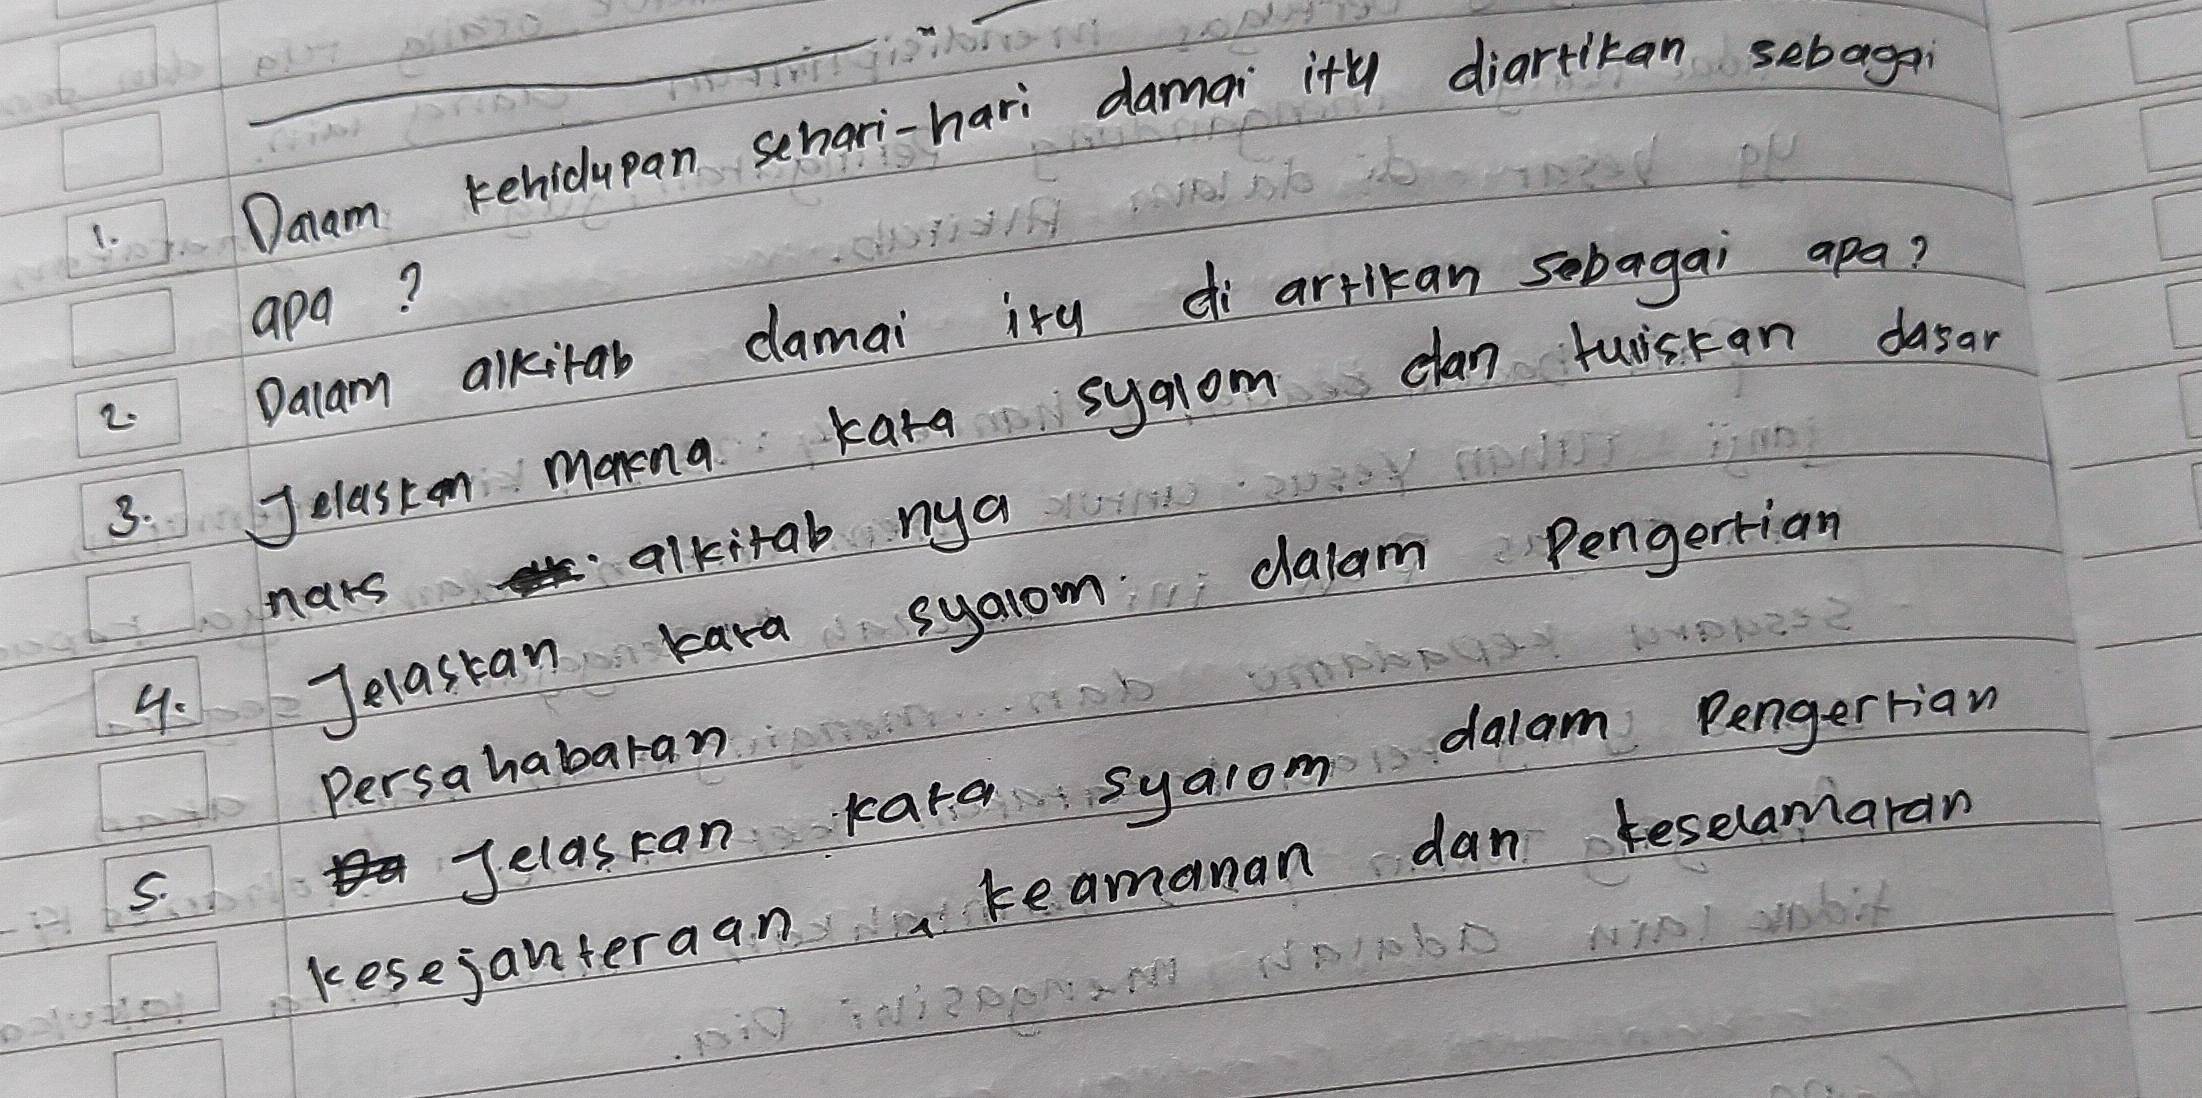 1. Dalam kehidupan sehari-hari damai itu diartikan sebagai
apa ?
2. Dalam alkitab damai itu di artikan sebagai apa?
3. Jelaskan makna kata syalom dan tuliskan dasar
nats alkitab nya
4. Jelaskan kata syalom dalam Pengertian
Persahabatan
5. Jelaskan kata syalom dalam Pengertian
kesejahteraan, keamanan dan keselamatan